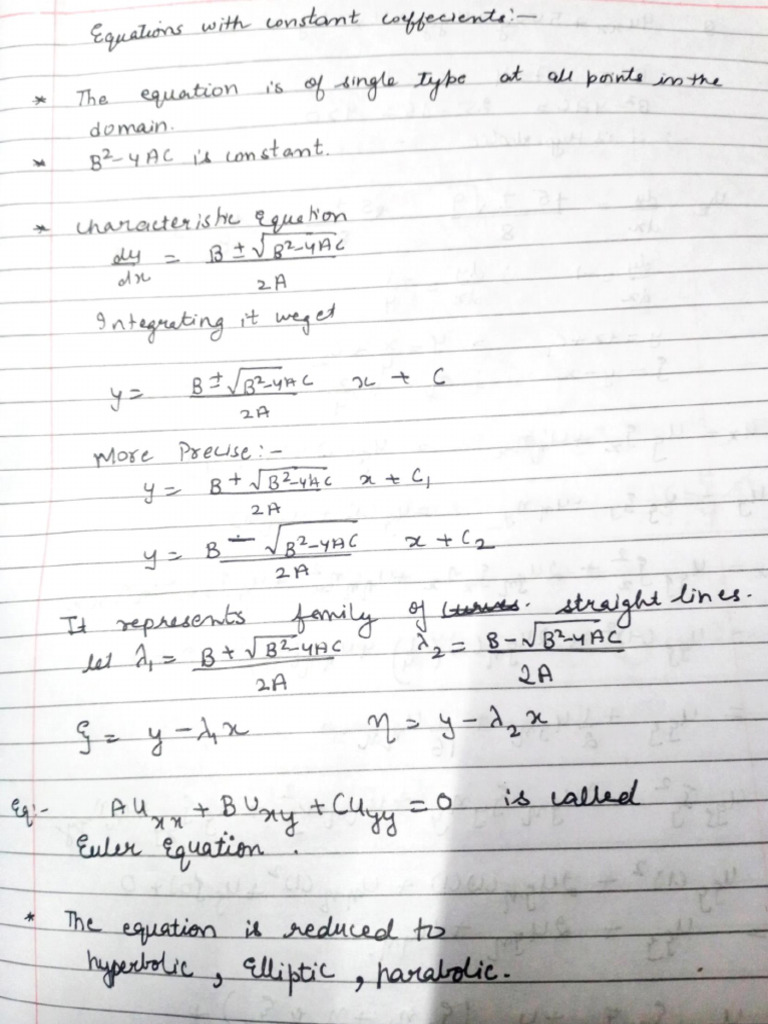 Equations with constant coeffecients:-
* The equation is of single type at all points in the
domain.
* B²-4AC is constant.
* characteristic equation
dy/dx = B ± √B²-4AC / 2A
Integrating it we get
y = B ± √B²-4AC / 2A x + C
More Precise:-
y = B + √B²-4AC / 2A x + C₁
y = B - √B²-4AC / 2A x + C₂
It represents family of straight lines.
let λ₁ = B + √B²-4AC / 2A λ₂ = B - √B²-4AC / 2A
ξ = y - λ₁x η = y - λ₂x
Eq:- AUxx + BUxy + CUyy = 0 is called
Euler Equation.
* The equation is reduced to
hyperbolic, Elliptic, parabolic.